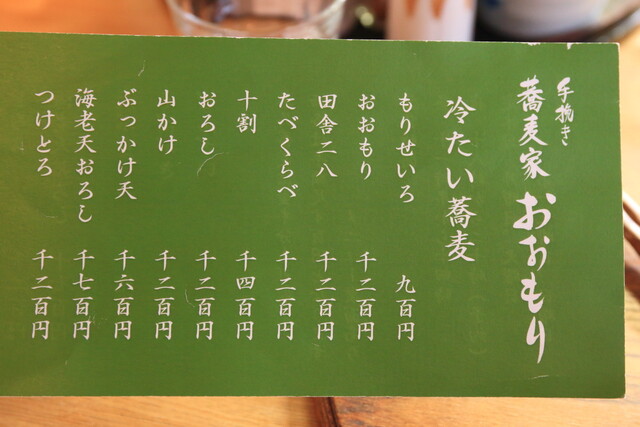 手挽き
蕎麦家 おおもり
冷たい蕎麦
もりせいろ 九百円
おおもり 千二百円
田舎二八 千二百円
たべくらべ 千二百円
十割 千四百円
おろし 千二百円
山かけ 千二百円
ぶっかけ天 千六百円
海老天おろし 千七百円
つけとろ 千二百円